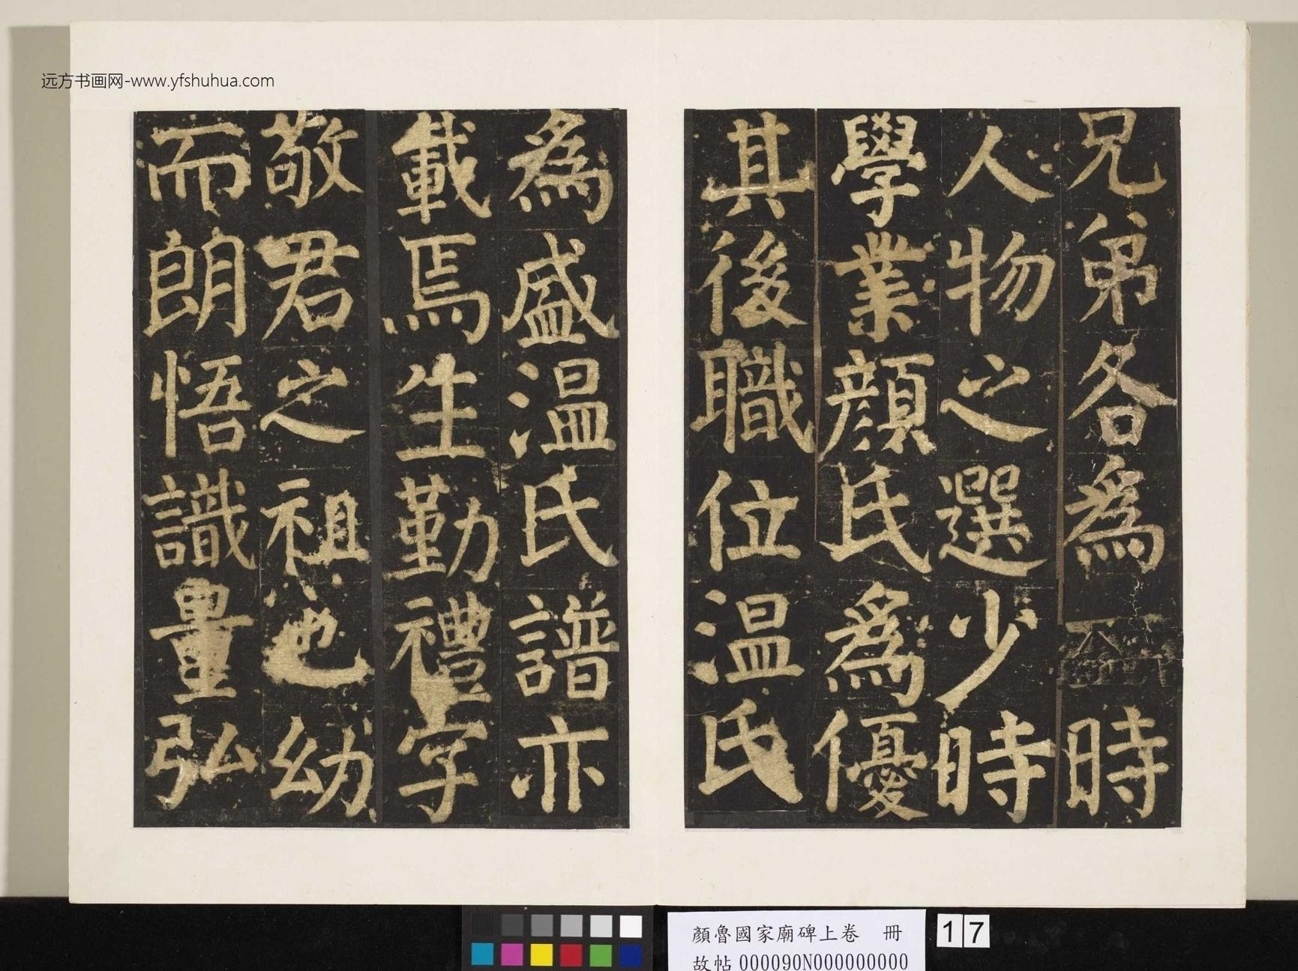 远方书画网-www.yfshuhua.com
兄弟各為時
人物之選少時
學業顏氏為優
其後職位温氏
為盛温氏譜亦
載焉生勤禮字
敬君之祖也幼
而朗悟識量弘
顏魯國家廟碑上卷 冊
故帖 000090N000000000
17